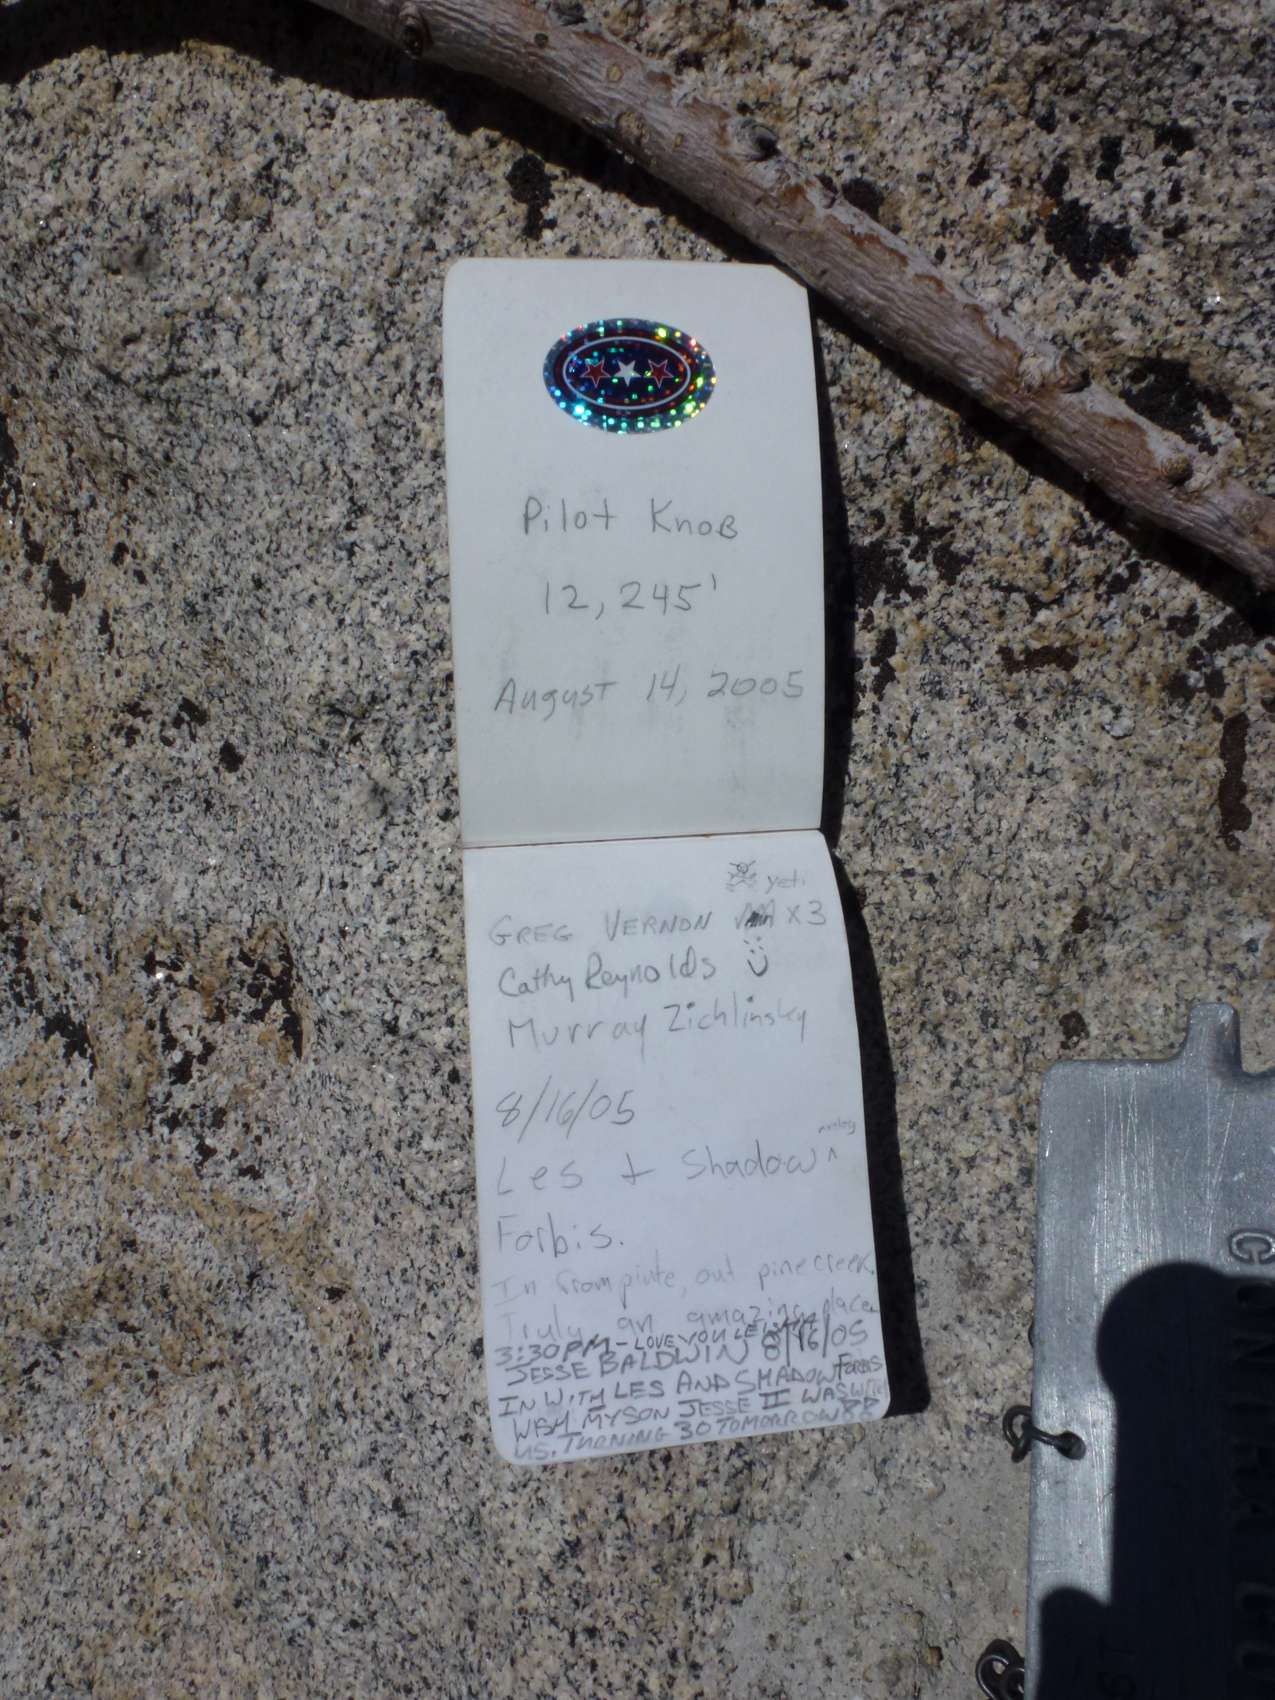 Pilot Knob
12,245'
August 14, 2005
yeti
GREG VERNON X3
Cathy Reynolds
Murray Zichlinsky
8/16/05
Les + Shadow
Forbis.
In from piute, out pinecreek.
Truly an amazing place
3:30PM - LOVE YOU
JESSE BALDWIN 8/16/05
IN WITH LES AND SHADOW FORBIS
WISH MY SON JESSE II WAS W/
US. TURNING 30 TOMORROW